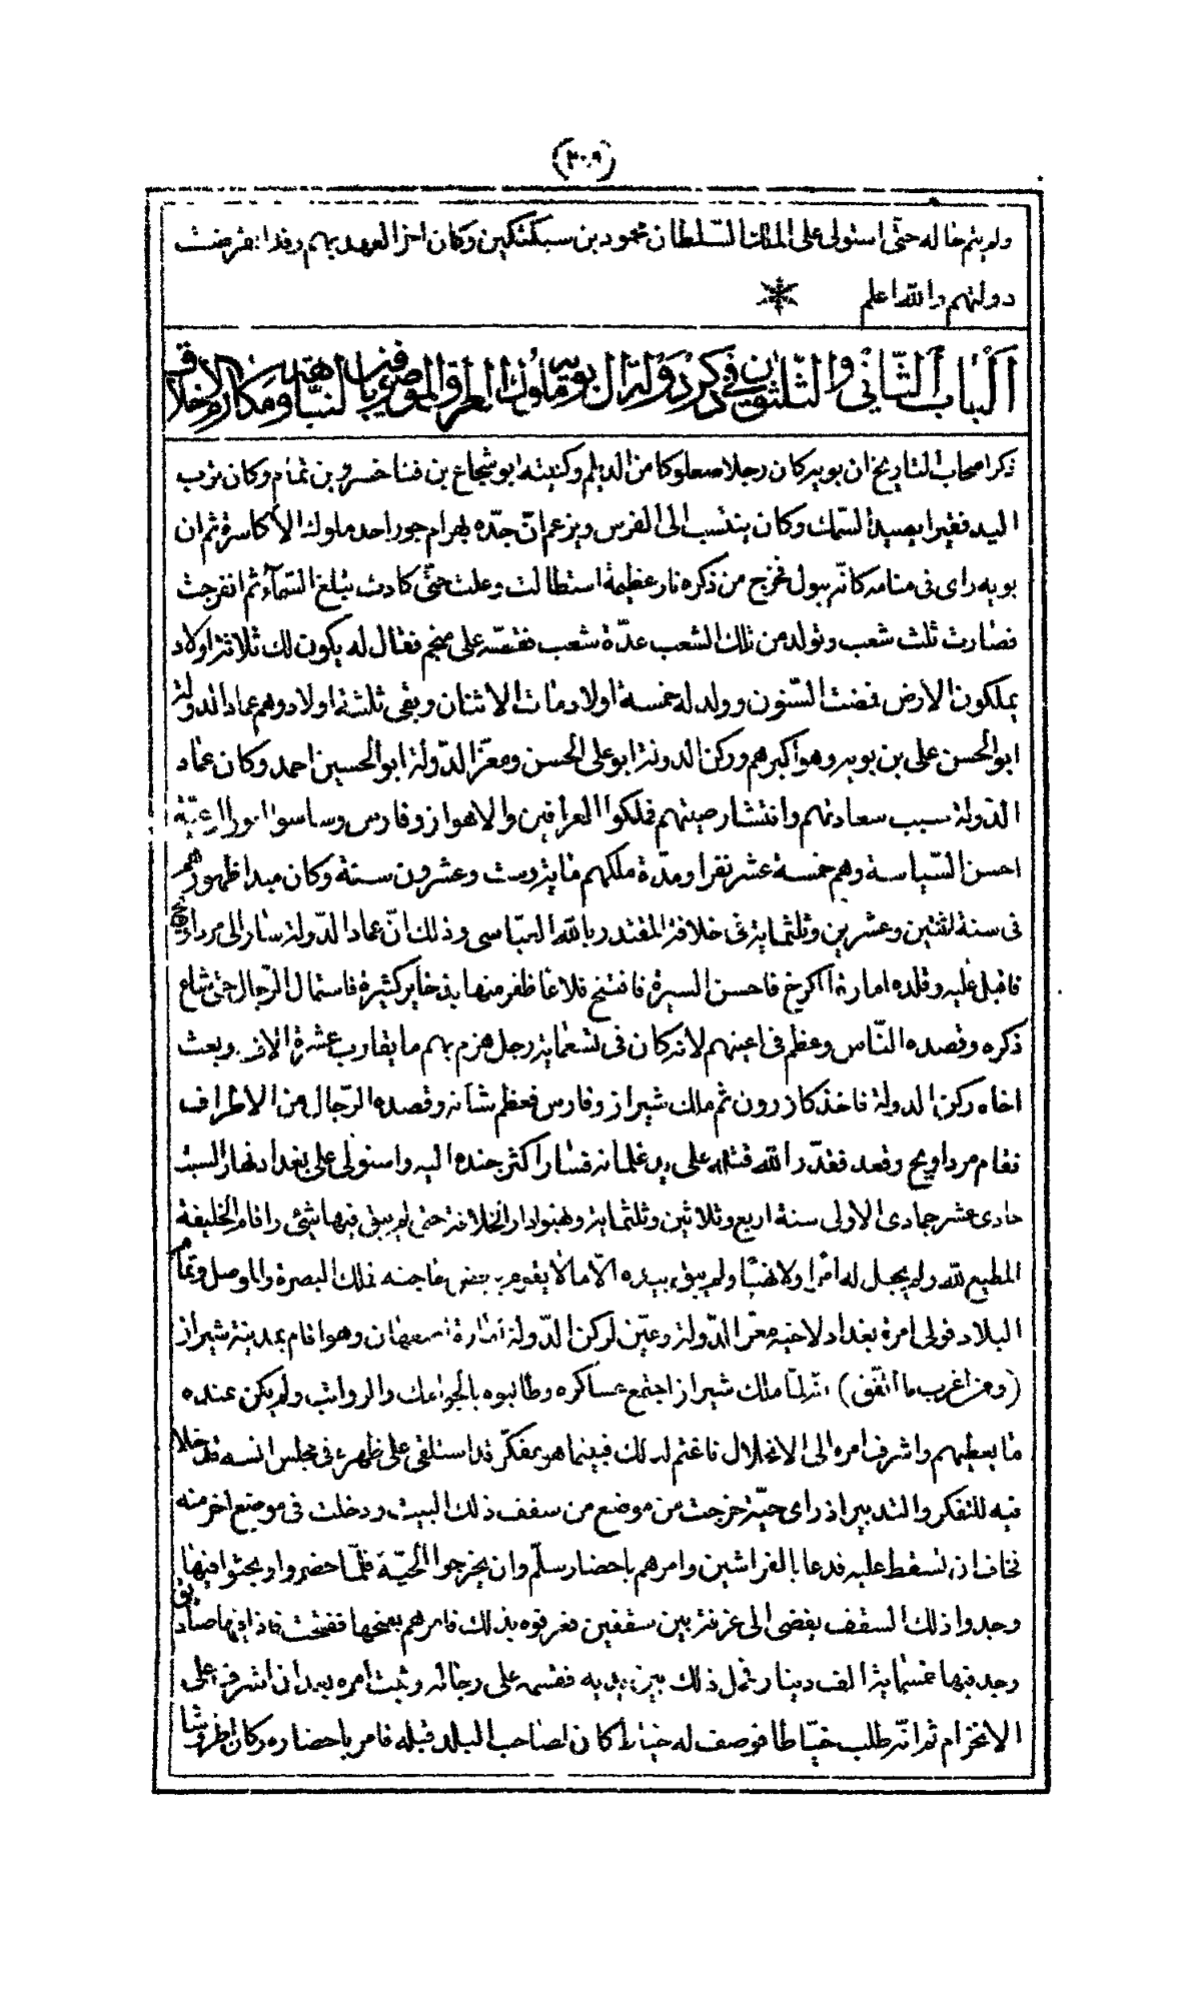 (٣٠٩)
ولم يتم حاله حتى استولى على الملك السلطان محمود بن سبكتكين وكان اخر العهد بهم وقد انقرضت
دولتهم والله اعلم
الباب الثاني والثلثون في ذكر دولة ال بويه ملوك العراق الموصوفين بالنباهة ومكارم الاخلاق
ذكر اصحاب التاريخ ان بويه كان رجلا صعلوكا من الديلم وكنيته ابو شجاع بن فنا خسرو بن تمام وكان ترب
اليد فقيرا يصيد السمك وكان ينتسب الى الفرس ويزعم انّ جدّه بهرام جور احد ملوك الأكاسرة ثم ان
بويه راى فى منامه كانّه يبول فخرج من ذكره نار عظيمة استطالت وعلت حتّى كادت تبلغ السّمآء ثم انفرجت
فصارت ثلث شعب وتولد من تلك الشعب عدّة شعب فقصّه على منجم فقال له يكون لك ثلاثة اولاد
يملكون الارض فمضت السّنون وولد له خمسة اولاد مات الاثنان وبقى ثلثة اولاد وهم عماد الدولة
ابو الحسن على بن بويه وهو اكبرهم وركن الدولة ابو على الحسن ومعزّ الدّولة ابو الحسين احمد وكان عماد
الدّولة سبب سعادتهم وانتشار صيتهم فملكوا العراقين والاهواز وفارس وساسوا امور الرعيّة
احسن السّياسة وهم خمسة عشر نفرا ومدّة ملكهم مأية وست وعشرون سنة وكان مبدا ظهورهم
فى سنة اثنتين وعشرين وثلثماية فى خلافة المقتدر بالله العبّاسى وذلك انّ عماد الدّولة سار الى مرداويج
فاقبل عليه وقلده امارة الكرخ فاحسن السيرة فافتتح قلاعا ظفر منها بذخاير كثيرة فاستمال الرّجال حتى شاع
ذكره وقصده النّاس وعظم فى اعينهم لانه كان فى تسعماية رجل هزم بهم ما يقارب عشرة الاف وبعث
اخاه ركن الدولة فاخذ كازرون ثم ملك شيراز وفارس فعظم شأنه وقصده الرّجال من الاطراف
فقام مرداويج وقعد فقدّر الله قتله على يد غلمانه فسار اكثر جنده اليه واستولى على بغداد نهار السبت
حادى عشر جمادى الاولى سنة اربع وثلاثين وثلثماية ونهبوا دار الخلافة حتى لم يبق فيها شئ واقام الخليفة
المطيع لله ولم يجعل له أمرا ولا نهيا ولم يبق بيده الّا ما لا يقوم ببعض حاجته فملك البصرة والموصل وتمام
البلاد فولى امرة بغداد لاخيه معزّ الدّولة وعيّن لركن الدّولة امارة اصفهان وهو اقام بمدينة شيراز
(ومن اغرب ما اتّفق) انّه لمّا ملك شيراز اجتمع عساكره وطالبوه بالجوامك والرواتب ولم يكن عنده
ما يعطيهم واشرف امره الى الانحلال فاغتم لذلك فبينما هو مفكّر قد استلقى على ظهره فى مجلس انسه قد خلا
فيه للتفكر والتدبير اذ راى حيّة خرجت من موضع من سقف ذلك البيت ودخلت فى موضع اخر منه
فخاف ان تسقط عليه فدعا بالفراشين وامرهم باحضار سلّم وان يخرجوا الحيّة فلمّا حضروا وبحثوا فيها
وجدوا ذلك السقف يفضى الى غرفة بين سقفين فعرفوه بذلك فامرهم بفتحها ففتحت فاذا فيها صناديق
وجد فيها خمسماية الف دينار فحمل ذلك بين يديه فقسمه على رجاله وثبت امره بعد ان اشرف على
الانخرام ثم انّه طلب خيّاطا فوصف له خياط كان لصاحب البلد قبله فامر باحضاره وكان اطروشا